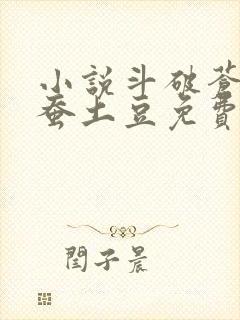 小說斗破蒼
蚕土豆免費
閆子晨